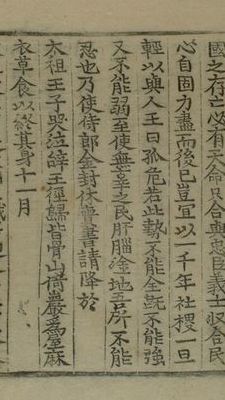 國之存亡必有天命只合與忠臣義士収合民
心自固力盡而後已豈冝以一千年社稷一旦
輕以與人王曰孤危若此勢不能全旣不能強
又不能弱至使無辜之民肝腦塗地吾所不能
忍也乃使侍郎金封休賷書請降於
太祖王子哭泣辝王徑歸皆骨山倚巖爲屋麻
衣草食以終其身十一月